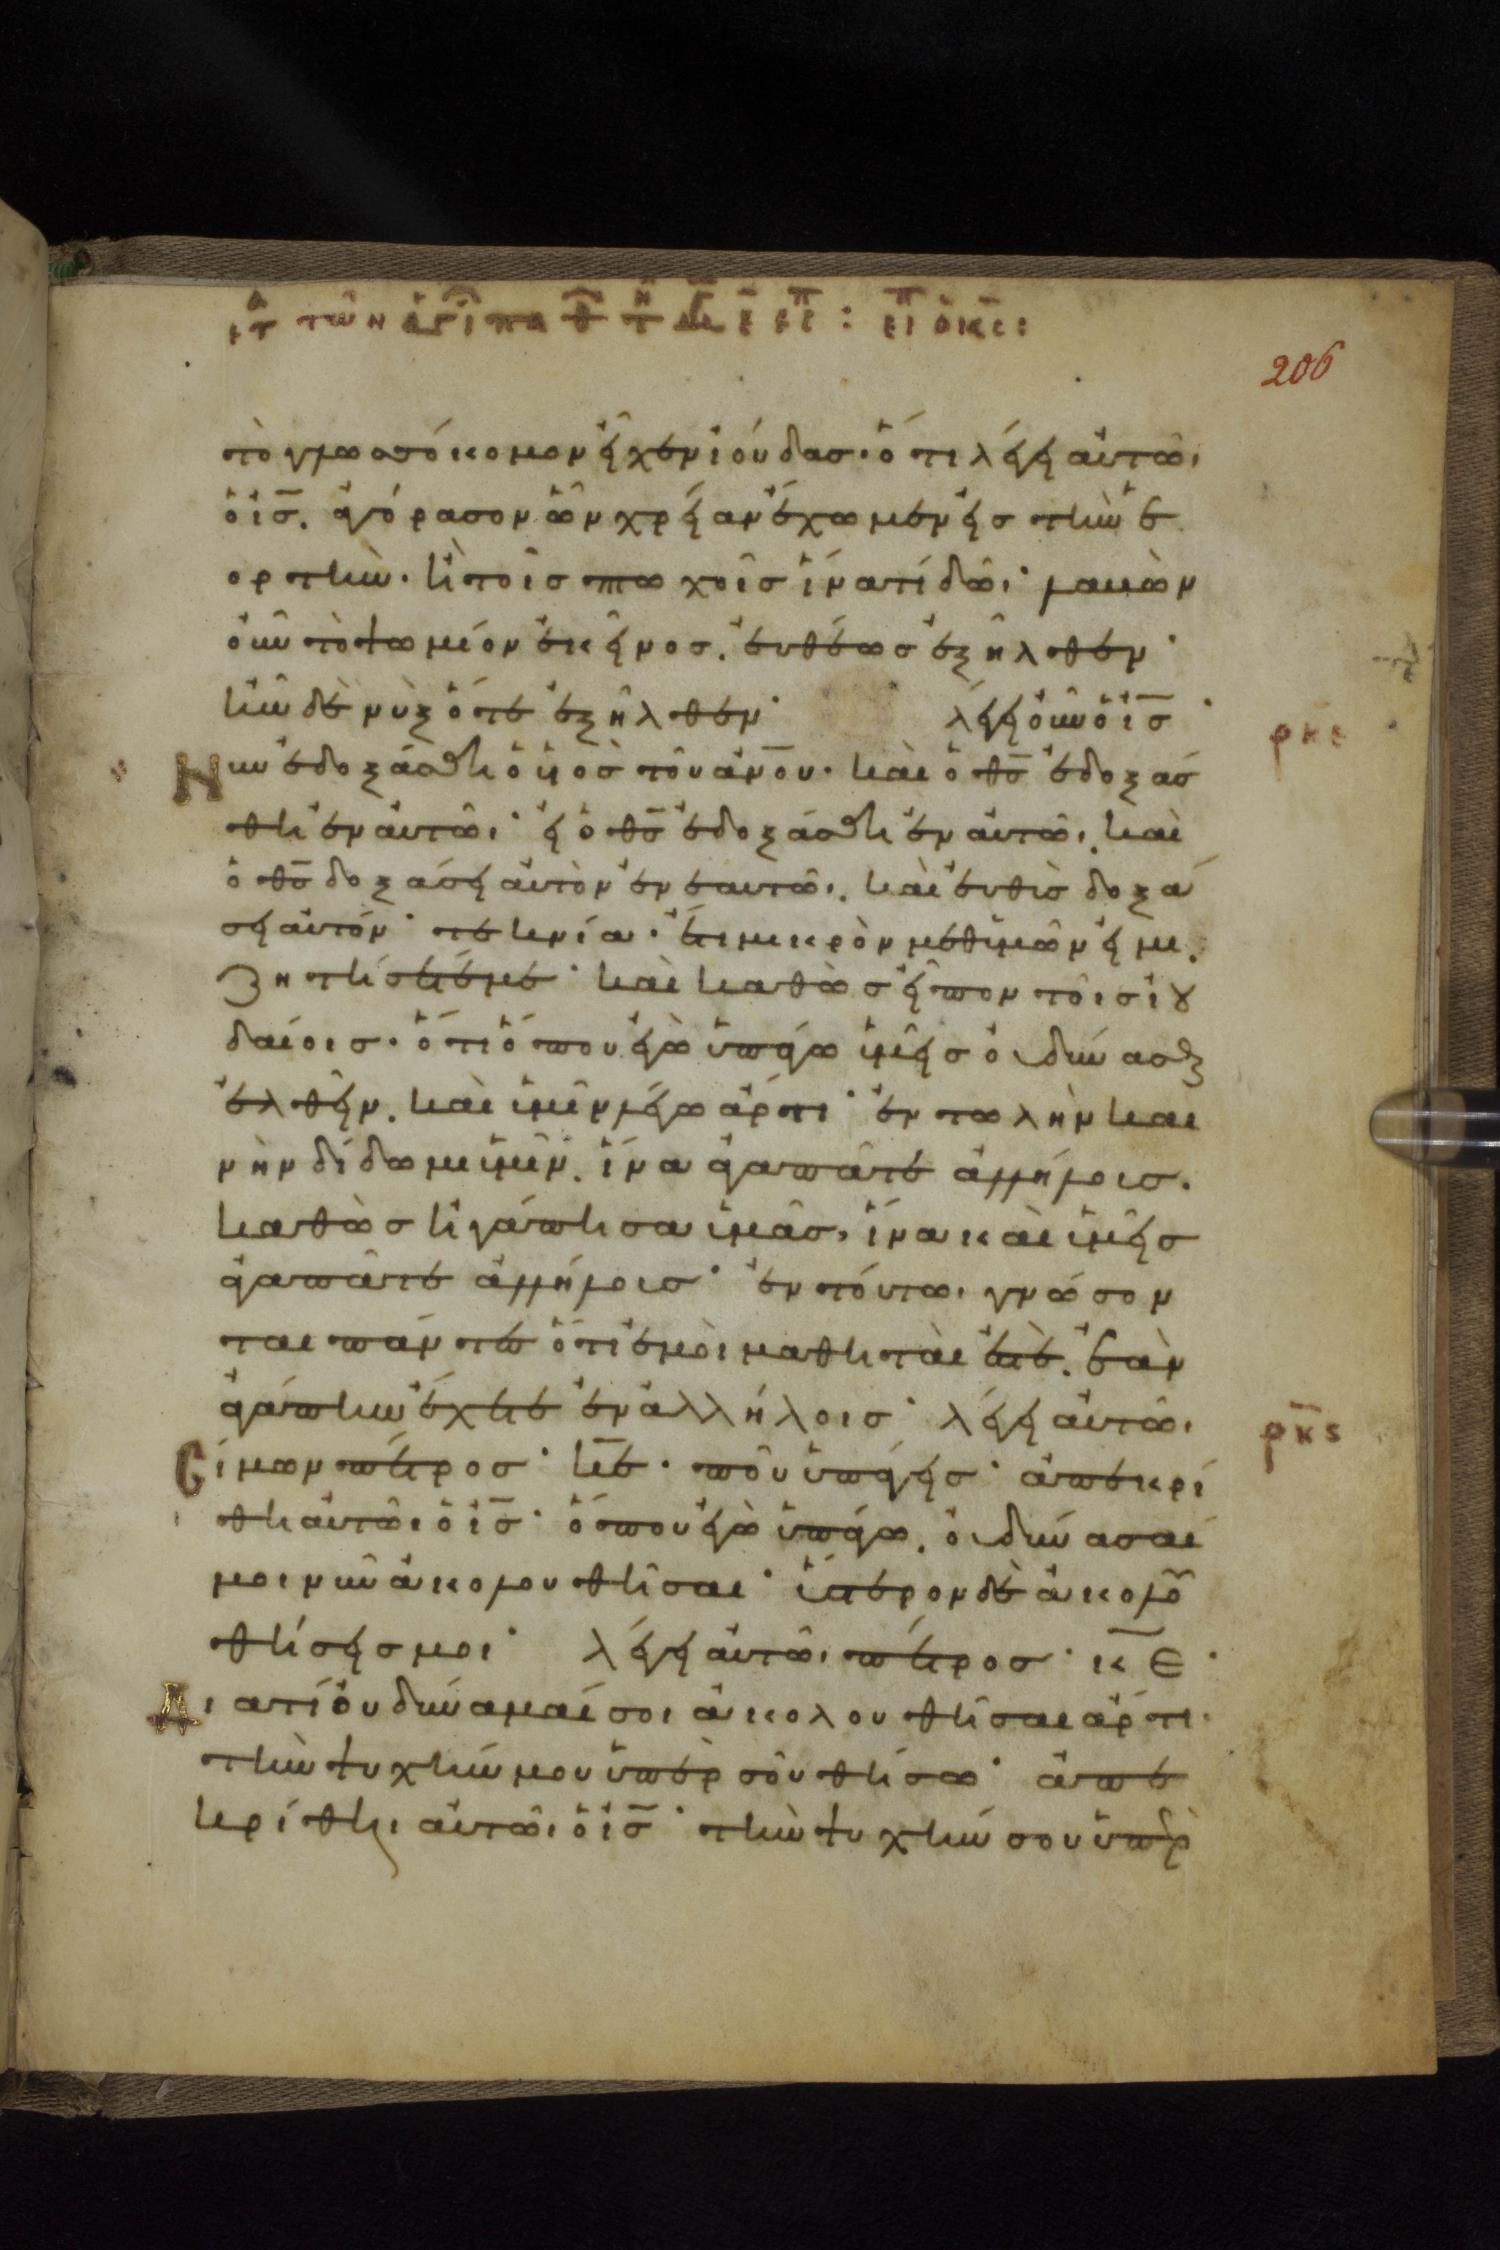 206
τὸ γλωσσόκομον εἶχεν ἰούδασ· ὅτι λέγει αὐτῶ,
ὁ ἰ̅σ̅. ἀγόρασον ὧν χρείαν ἔχωμεν εἰσ τὴν ἑ
ορτὴν· ἢ τοῖσ πτωχοῖσ ἵνα τί δῶι· λαβὼν
οὖν τὸ ψωμίον ἐκεῖνοσ. εὐθέωσ ἐξῆλθεν·
ἦν δὲ νὺξ ὅτε ἐξῆλθεν· λέγει οὖν ὁ ἰ̅σ̅·
ρ̅κ̅ε̅
Νῦν ἐδοξάσθη ὁ υἱὸσ τοῦ ἀν̅ο̅υ̅· καὶ ὁ θ̅σ̅ ἐδοξάσ
θη ἐν αὐτῶι· εἰ ὁ θ̅σ̅ ἐδοξάσθη ἐν αὐτῶι, καὶ
ὁ θ̅σ̅ δοξάσει αὐτὸν ἐν ἑαυτῶι. καὶ εὐθὺσ δοξά
σει αὐτόν· τεκνία· ἔτι μικρὸν μεθ' ὑμῶν εἰμι.
Ζητήσετέ με· καὶ καθὼσ εἶπον τοῖσ ἰου
δαίοισ· ὅτι ὅπου ἐγὼ ὑπάγω ὑμεῖσ οὐ δύνασθε
ἐλθεῖν. καὶ ὑμῖν λέγω ἄρτι· ἐντωλὴν και
νὴν δίδωμι ὑμῖν. ἵνα ἀγαπᾶτε ἀλλήλοισ.
καθὼσ ἠγάπησα ὑμᾶσ, ἵνα καὶ ὑμεῖσ
ἀγαπᾶτε ἀλλήλοισ· ἐν τούτωι γνώσον
ται πάντεσ ὅτι ἐμοὶ μαθηταὶ ἐστὲ. ἐὰν
ἀγάπην ἔχητε ἐν ἀλλήλοισ· λέγει αὐτῶι
ρ̅κ̅ς̅
Σίμων πέτροσ· κ̅ε̅· ποῦ ὑπάγεισ· ἀπεκρί
θη αὐτῶι ὁ ἰ̅σ̅· ὅπου ἐγὼ ὑπάγω, οὐ δύνασαί
μοι νῦν ἀκολουθῆσαι· ὕστερον δὲ ἀκολου
θήσεισ μοι· λέγει αὐτῶι πέτροσ· κ̅ε̅·
Διατί οὐ δύναμαί σοι ἀκολουθῆσαι ἄρτι·
τὴν ψυχήν μου ὑπὲρ σοῦ θήσω· ἀπε
κρίθη αὐτῶι ὁ ἰ̅σ̅· τὴν ψυχήν σου ὑπὲρ